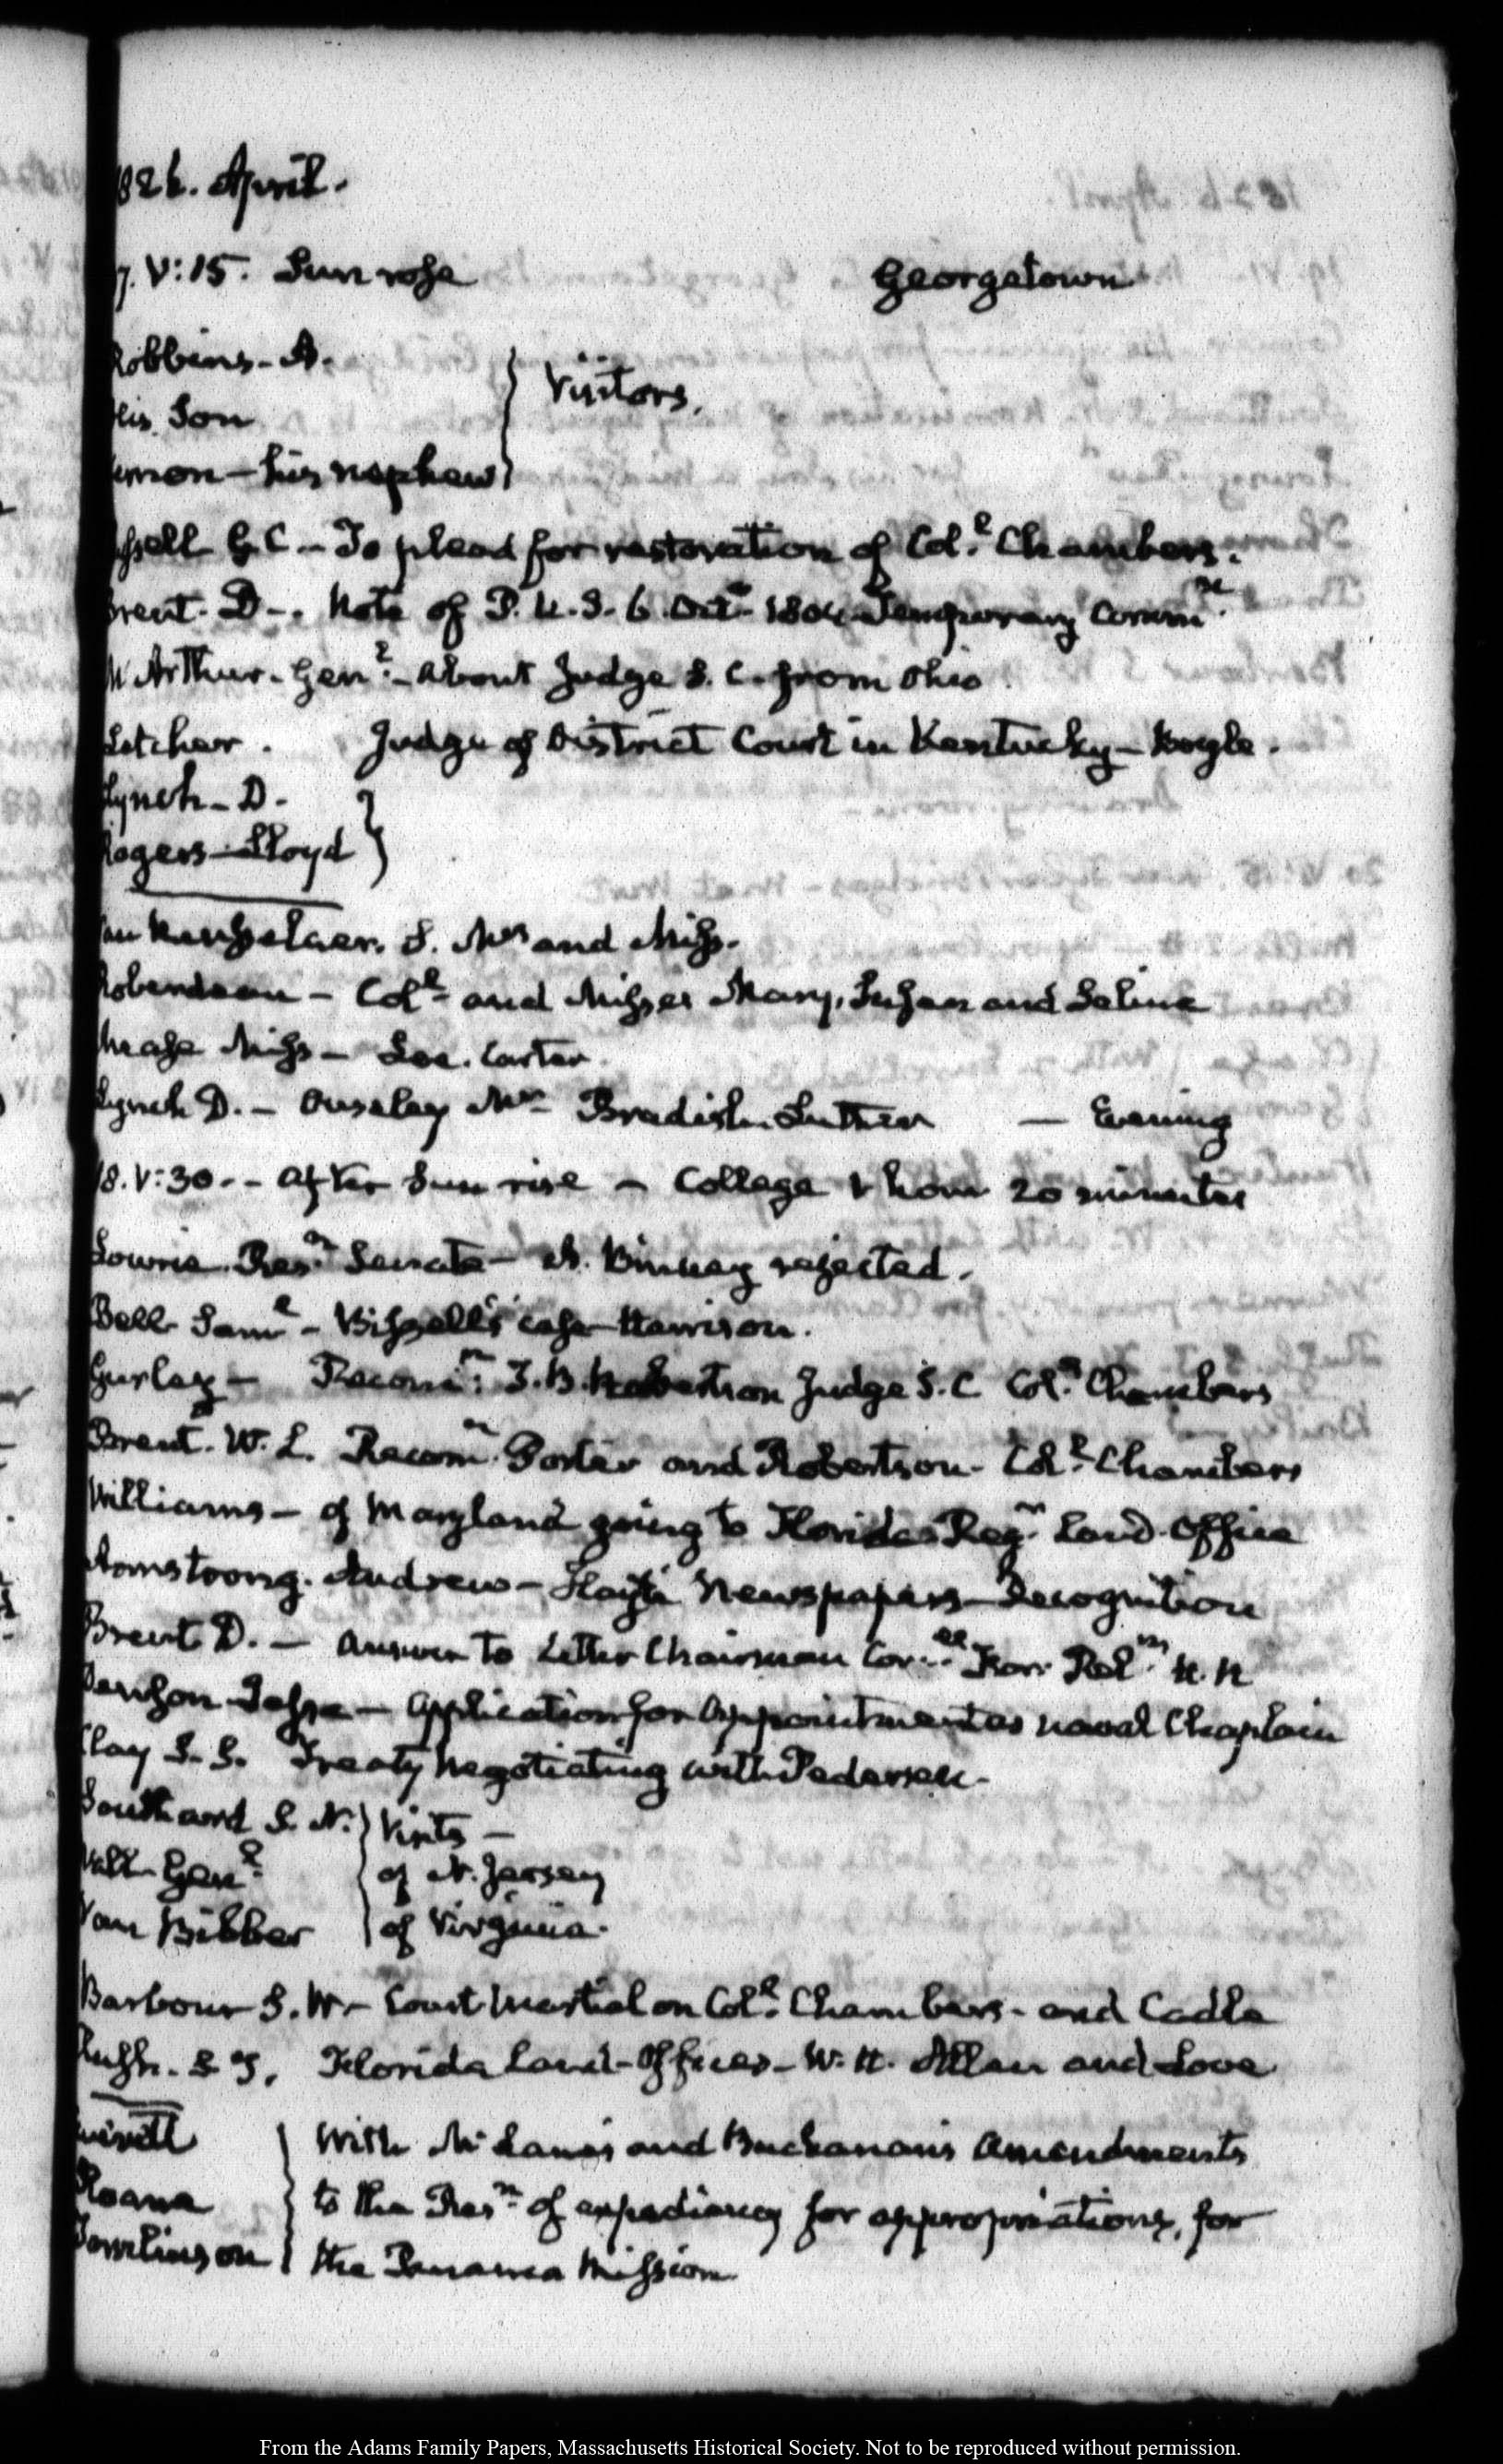 1826. April.
17. V:15. Sun rose Georgetown
Robbins - A.
His Son
Lemon - his nephew
Visitors.
Russell G. C - To plead for restoration of Col.l Chambers.
Brent. D -. Note of P. U. S. 6 Oct. 1804 Temporary Comm.ns
McArthur. Gen.l - about Judge S. C. from Ohio
Letcher. Judge of District Court in Kentucky - Boyle.
Lynch - D.
Rogers - Lloyd
Van Rensselaer. S. Mrs and Miss.
Roberdeau - Col.l and Misses Mary, Susan and Selina
Mease Miss - Lee. Carter
Lynch D. - Ouseley Mr Bradish. Luther - Evening
18. V:30. - after Sun rise - College 1 hour 20 minutes
Lowrie. Res.n Senate - A. Binney rejected.
Bell Sam.l - Bissell's case - Harrison.
Gurley - Recom.n T. B. Robertson Judge S. C Col.l Chambers
Brent. W. L. Recom.n Porter and Robertson - Col.l Chambers
Williams - of Maryland going to Florida Reg.r Land-Office
Armstrong. Andrew - Hayti Newspapers - Recognition
Brent D. - answer to Letter Chairman Com.ee For. Rel.ns H. R
Denison Jesse - Application for Appointment as naval Chaplain
Clay S. S. Treaty Negotiating with Pedersen -
Southard S. N. Visits -
Wall Gen.l of N. Jersey
Van Bibber of Virginia.
Barbour S. W. - Court Martial on Col.l Chambers - and Cadle
Rush. S T. Florida Land-Offices - W. H. Allen and Love
Everett With McLane's and Buchanan's Amendments
Sloane to the Res.n of expediency for appropriations, for
Tomlinson the Panama Mission
From the Adams Family Papers, Massachusetts Historical Society. Not to be reproduced without permission.